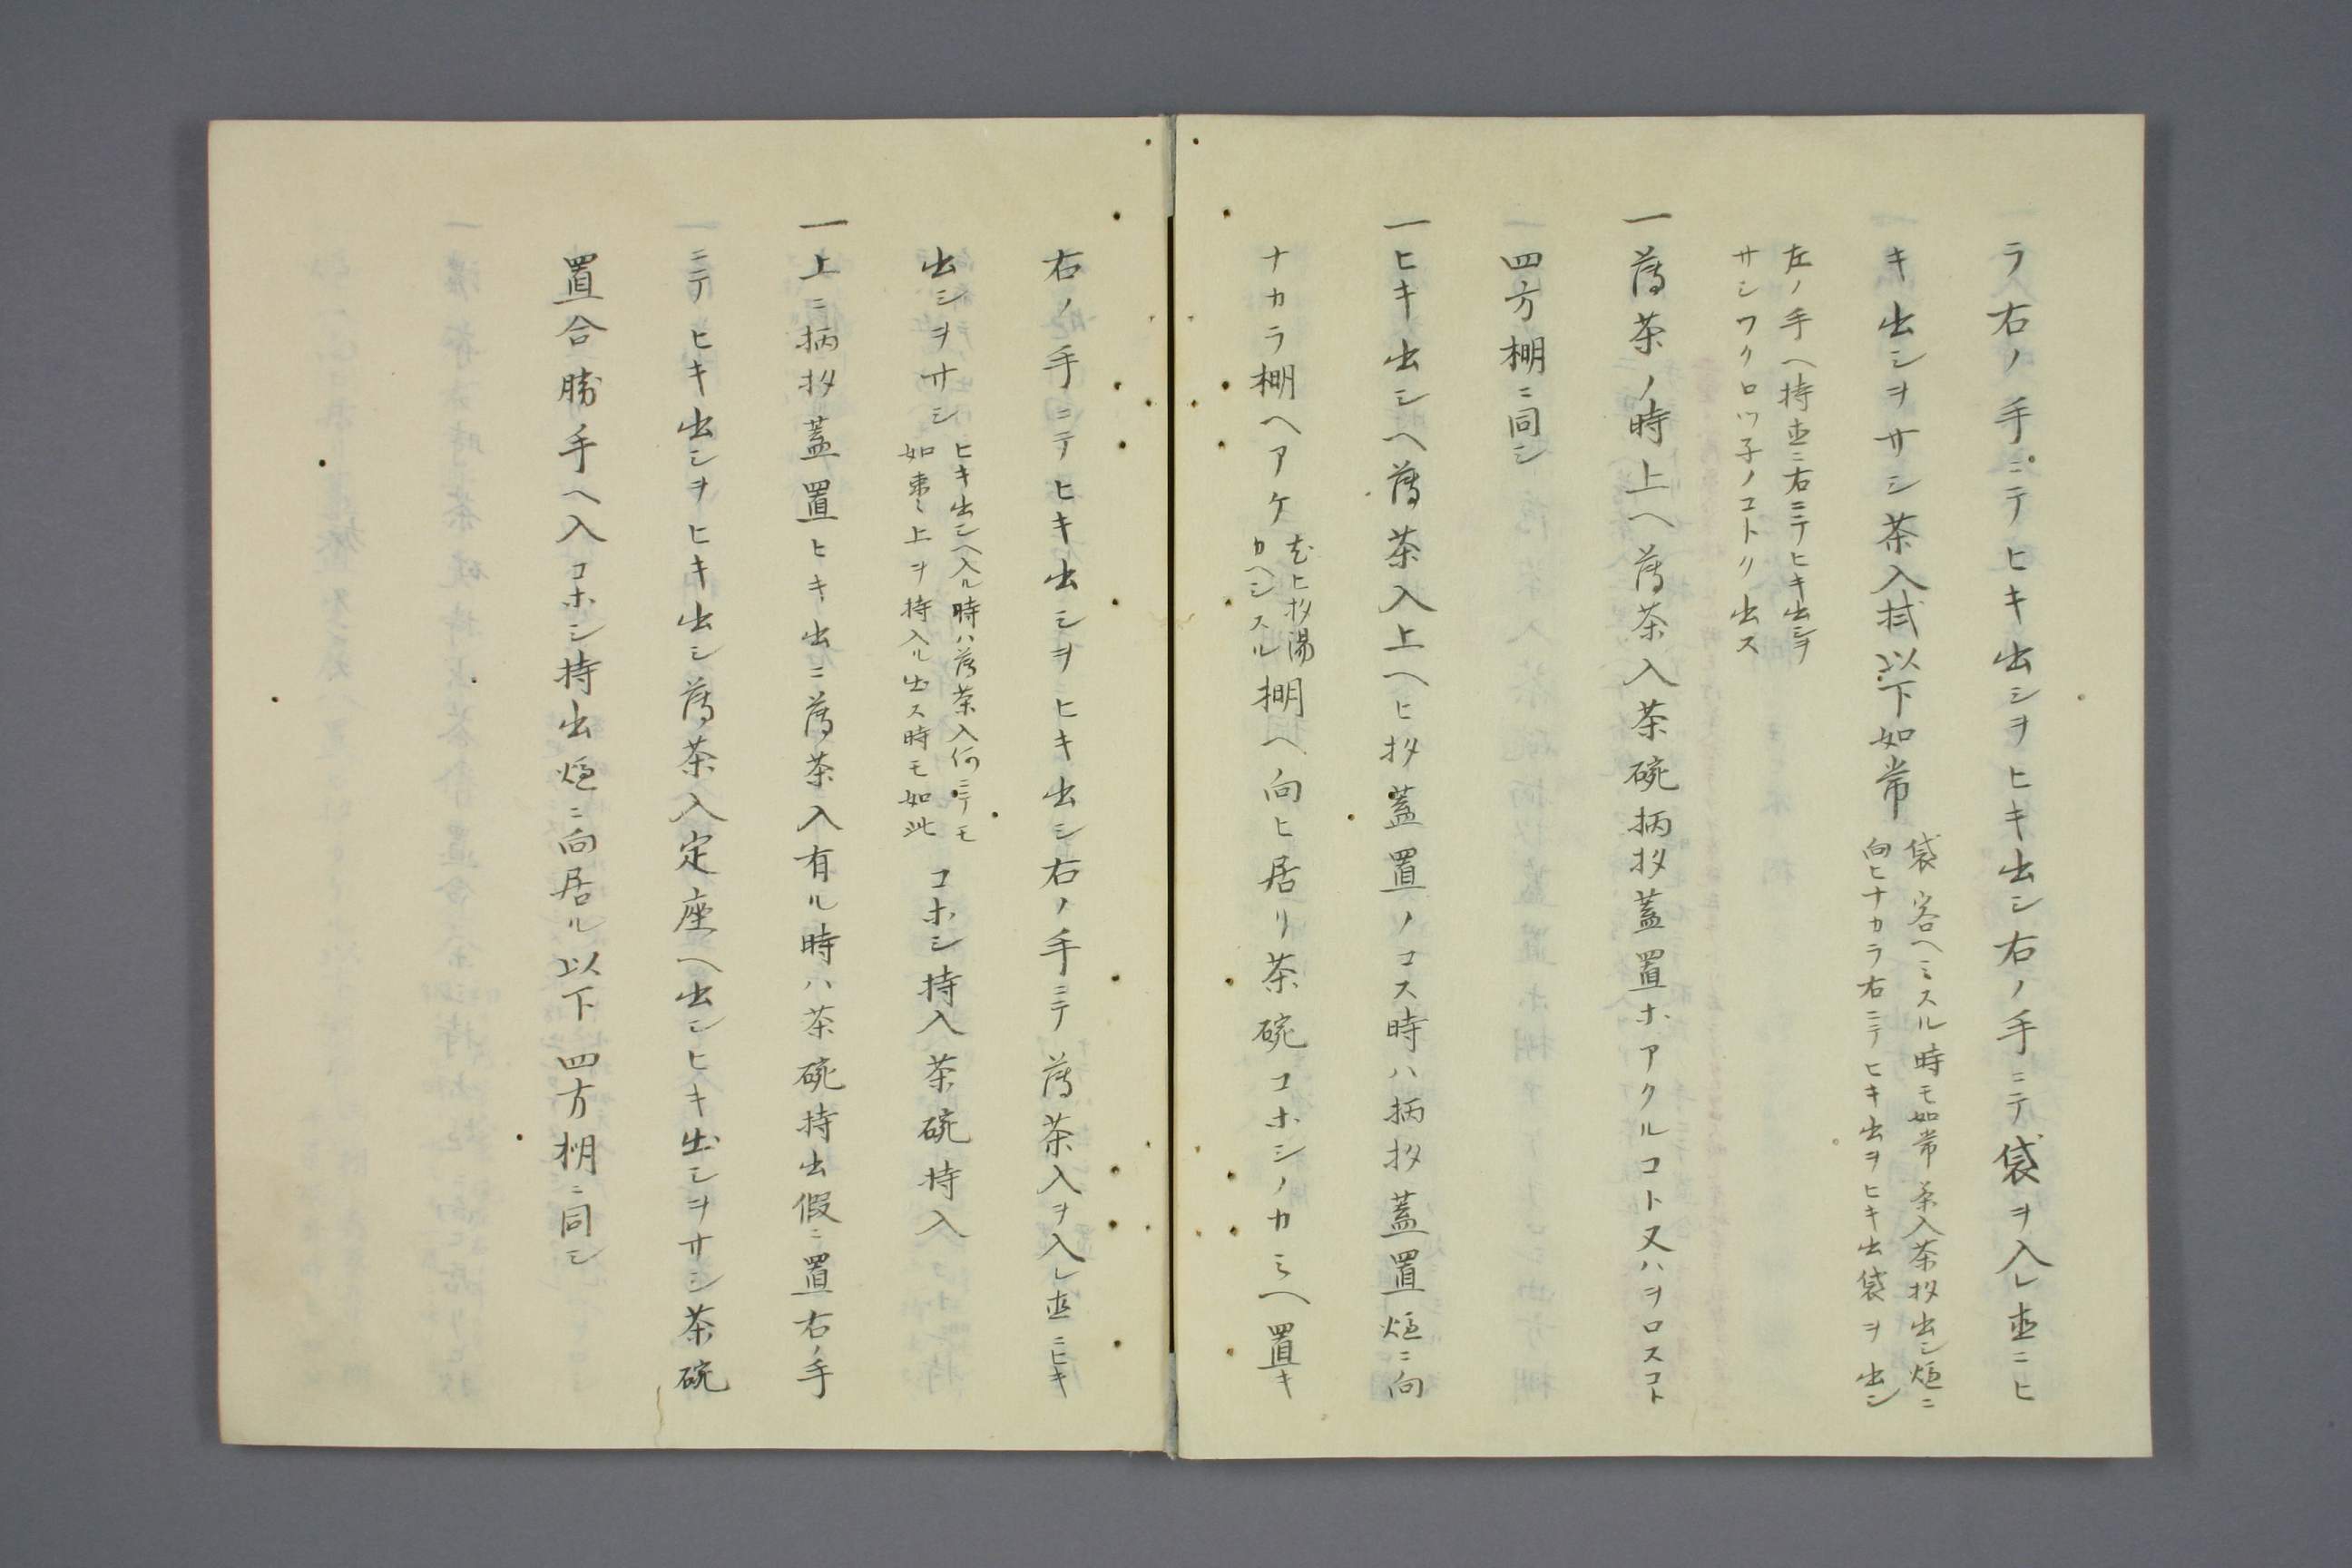 ラ右ノ手ニテヒキ出シヲヒキ出シ右ノ手ニテ袋ヲ入レ直ニヒ
キ出シヲサシ茶入拭以下如常
袋客ヘミスル時モ如常茶入茶杓出シ炉ニ
向ヒナカラ右ニテヒキ出ヲヒキ出袋ヲ出シ
左ノ手ヘ持直ニ右ニテヒキ出シヲ
サシワクロツ子ノコトク出ス
一薄茶ノ時上ヘ薄茶入茶碗柄杓蓋置ホアクルコト又ハヲロスコト
四方棚ニ同シ
一ヒキ出シヘ薄茶入上ヘヒ杓蓋置ノコス時ハ柄杓蓋置炉ニ向
ナカラ棚ヘアケ
ヒ杓湯
カヘシスル
棚ヘ向ヒ居リ茶碗コホシノカミヘ置キ
右ノ手ニテヒキ出シヲヒキ出シ右ノ手ニテ薄茶入ヲ入レ直ニヒキ
出シヲサシ
ヒキ出シヘ入ル時ハ薄茶入何ニテモ
如棗上ヲ持入ル出ス時モ如此
コホシ持入茶碗持入
一上ニ柄杓蓋置ヒキ出ニ薄茶入有ル時ハ茶碗持出假ニ置右ノ手
ニテヒキ出シヲヒキ出シ薄茶入定座ヘ出シヒキ出シヲサシ茶碗
置合勝手ヘ入コホシ持出炉ニ向居ル以下四方棚ニ同シ